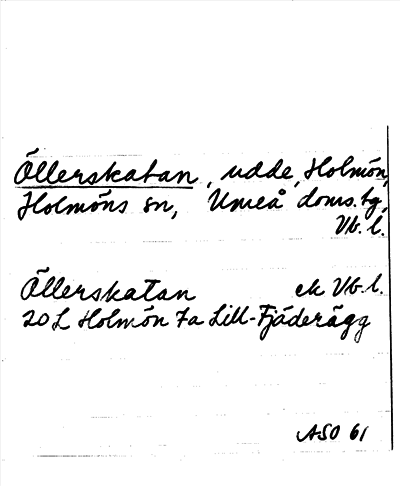 Öllerskatan, udde, Holmön,
Holmöns sn, Umeå doms. tg,
Vb. l.
Öllerskatan ek Vb. l.
20 L Holmön 7a Lill-Fjäderägg
ASO 61